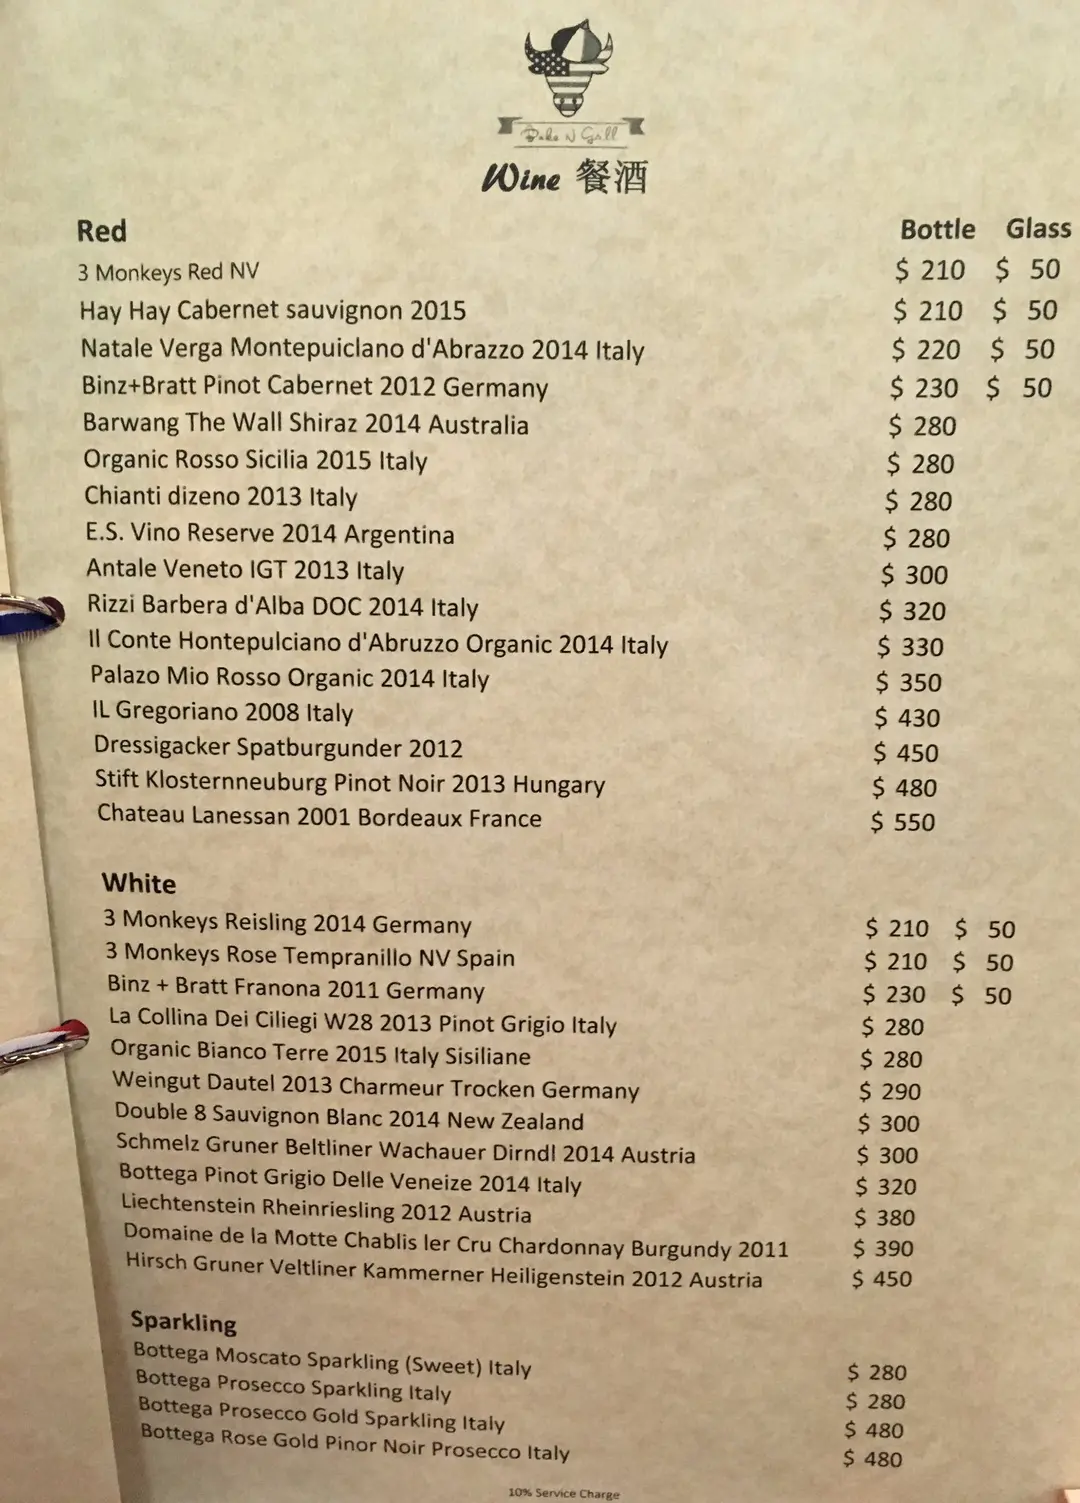 Bake N Grill
Wine 餐酒
Red Bottle Glass
3 Monkeys Red NV $ 210 $ 50
Hay Hay Cabernet sauvignon 2015 $ 210 $ 50
Natale Verga Montepuiclano d'Abrazzo 2014 Italy $ 220 $ 50
Binz+Bratt Pinot Cabernet 2012 Germany $ 230 $ 50
Barwang The Wall Shiraz 2014 Australia $ 280
Organic Rosso Sicilia 2015 Italy $ 280
Chianti dizeno 2013 Italy $ 280
E.S. Vino Reserve 2014 Argentina $ 280
Antale Veneto IGT 2013 Italy $ 300
Rizzi Barbera d'Alba DOC 2014 Italy $ 320
Il Conte Hontepulciano d'Abruzzo Organic 2014 Italy $ 330
Palazo Mio Rosso Organic 2014 Italy $ 350
IL Gregoriano 2008 Italy $ 430
Dressigacker Spatburgunder 2012 $ 450
Stift Klosternneuburg Pinot Noir 2013 Hungary $ 480
Chateau Lanessan 2001 Bordeaux France $ 550
White
3 Monkeys Reisling 2014 Germany $ 210 $ 50
3 Monkeys Rose Tempranillo NV Spain $ 210 $ 50
Binz + Bratt Franona 2011 Germany $ 230 $ 50
La Collina Dei Ciliegi W28 2013 Pinot Grigio Italy $ 280
Organic Bianco Terre 2015 Italy Sisiliane $ 280
Weingut Dautel 2013 Charmeur Trocken Germany $ 290
Double 8 Sauvignon Blanc 2014 New Zealand $ 300
Schmelz Gruner Beltliner Wachauer Dirndl 2014 Austria $ 300
Bottega Pinot Grigio Delle Veneize 2014 Italy $ 320
Liechtenstein Rheinriesling 2012 Austria $ 380
Domaine de la Motte Chablis ler Cru Chardonnay Burgundy 2011 $ 390
Hirsch Gruner Veltliner Kammerner Heiligenstein 2012 Austria $ 450
Sparkling
Bottega Moscato Sparkling (Sweet) Italy $ 280
Bottega Prosecco Sparkling Italy $ 280
Bottega Prosecco Gold Sparkling Italy $ 480
Bottega Rose Gold Pinor Noir Prosecco Italy $ 480
10% Service Charge